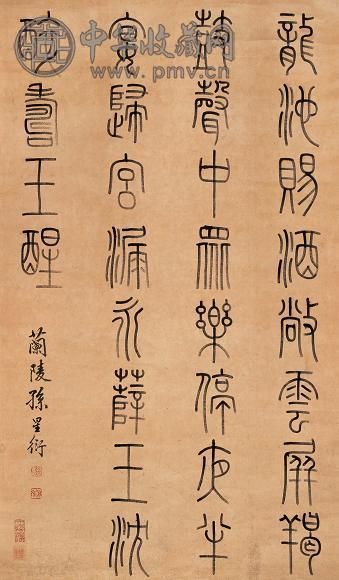 龍池賜酒敞雲屏羯
鼓聲中眾樂停夜半
宴歸宮漏永薛王沈
醉壽王醒
蘭陵孫星衍
中安收藏网
www.pmv.cn